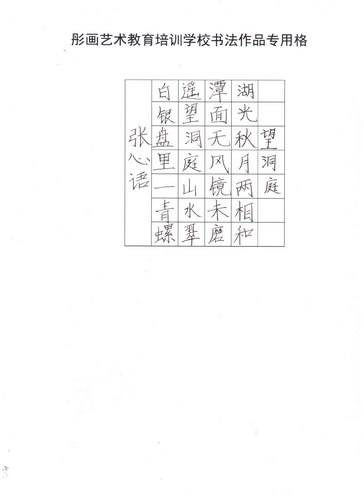 彤画艺术教育培训学校书法作品专用格
望洞庭
湖光秋月两相和
潭面无风镜未磨
遥望洞庭山水翠
白银盘里一青螺
张心语